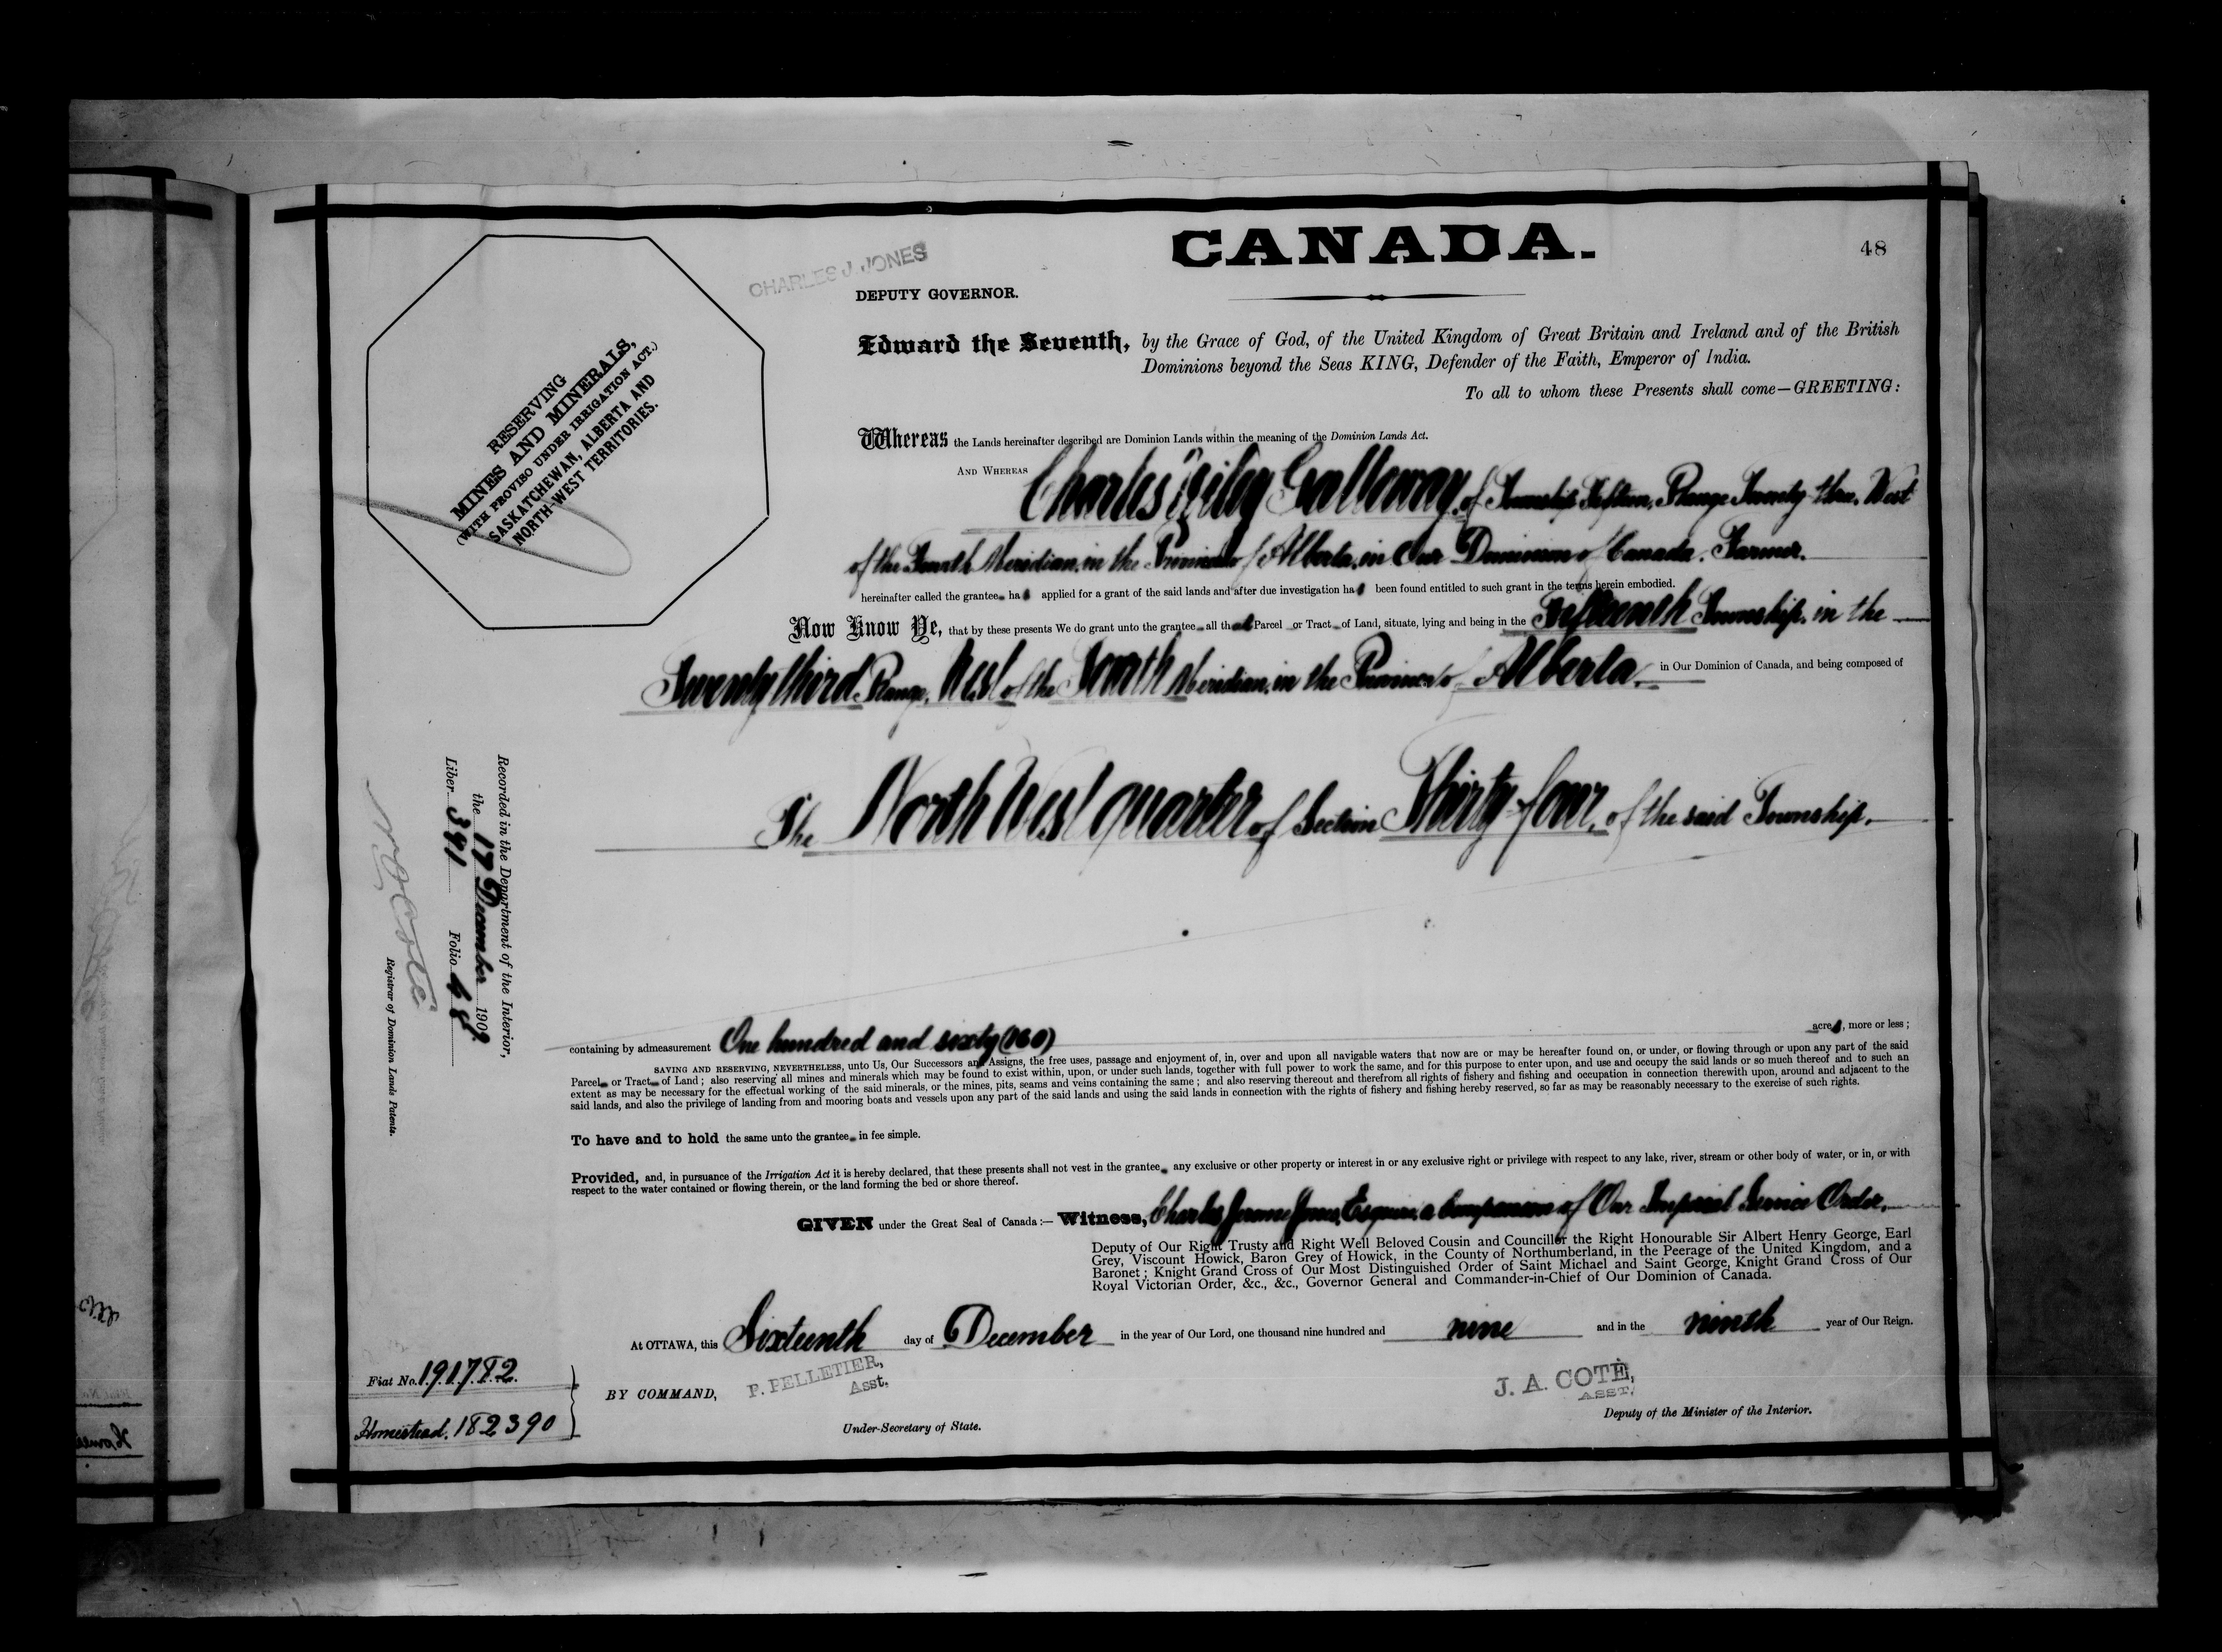 CANADA.
48
CHARLES J. JONES
DEPUTY GOVERNOR.
RESERVING
MINES AND MINERALS,
(WITH PROVISO UNDER IRRIGATION ACT.)
SASKATCHEWAN, ALBERTA AND
NORTH-WEST TERRITORIES.
Edward the Seventh, by the Grace of God, of the United Kingdom of Great Britain and Ireland and of the British
Dominions beyond the Seas KING, Defender of the Faith, Emperor of India.
To all to whom these Presents shall come—GREETING:
Whereas the Lands hereinafter described are Dominion Lands within the meaning of the Dominion Lands Act.
AND WHEREAS Charles Galloway, of Township Fifteen, Range Twenty-three, West
of the Fourth Meridian, in the Province of Alberta, in Our Dominion of Canada, Farmer.
hereinafter called the grantee has applied for a grant of the said lands and after due investigation has been found entitled to such grant in the terms herein embodied.
Now Know Ye, that by these presents We do grant unto the grantee all that Parcel or Tract of Land, situate, lying and being in the Fifteenth Township, in the
Twenty third Range, West of the Fourth Meridian, in the Province of Alberta, in Our Dominion of Canada, and being composed of
The North West quarter of Section Thirty-four, of the said Township,
containing by admeasurement One hundred and sixty (160) acres, more or less;
SAVING AND RESERVING, NEVERTHELESS, unto Us, Our Successors and Assigns, the free uses, passage and enjoyment of, in, over and upon all navigable waters that now are or may be hereafter found on, or under, or flowing through or upon any part of the said
Parcel or Tract of Land; also reserving all mines and minerals which may be found to exist within, upon, or under such lands, together with full power to work the same, and for this purpose to enter upon, and use and occupy the said lands or so much thereof and to such an
extent as may be necessary for the effectual working of the said minerals, or the mines, pits, seams and veins containing the same; and also reserving thereout and therefrom all rights of fishery and fishing and occupation in connection therewith upon, around and adjacent to the
said lands, and also the privilege of landing from and mooring boats and vessels upon any part of the said lands and using the said lands in connection with the rights of fishery and fishing hereby reserved, so far as may be reasonably necessary to the exercise of such rights.
To have and to hold the same unto the grantee in fee simple.
Provided, and, in pursuance of the Irrigation Act it is hereby declared, that these presents shall not vest in the grantee any exclusive or other property or interest in or any exclusive right or privilege with respect to any lake, river, stream or other body of water, or in, or with
respect to the water contained or flowing therein, or the land forming the bed or shore thereof.
GIVEN under the Great Seal of Canada:— Witness, Charles Jerome Jones, Esquire, a Companion of Our Imperial Service Order,
Deputy of Our Right Trusty and Right Well Beloved Cousin and Councillor the Right Honourable Sir Albert Henry George, Earl
Grey, Viscount Howick, Baron Grey of Howick, in the County of Northumberland, in the Peerage of the United Kingdom, and a
Baronet; Knight Grand Cross of Our Most Distinguished Order of Saint Michael and Saint George, Knight Grand Cross of Our
Royal Victorian Order, &c., &c., Governor General and Commander-in-Chief of Our Dominion of Canada.
At OTTAWA, this Sixteenth day of December in the year of Our Lord, one thousand nine hundred and nine and in the ninth year of Our Reign.
BY COMMAND,
P. PELLETIER,
Asst.
Under-Secretary of State.
J. A. COTÉ,
ASST.
Deputy of the Minister of the Interior.
Recorded in the Department of the Interior,
the 17 December 1909.
Liber 391 Folio 48
N O Coté
Registrar of Dominion Lands Patents.
Fiat No. 191782.
Homestead. 182390